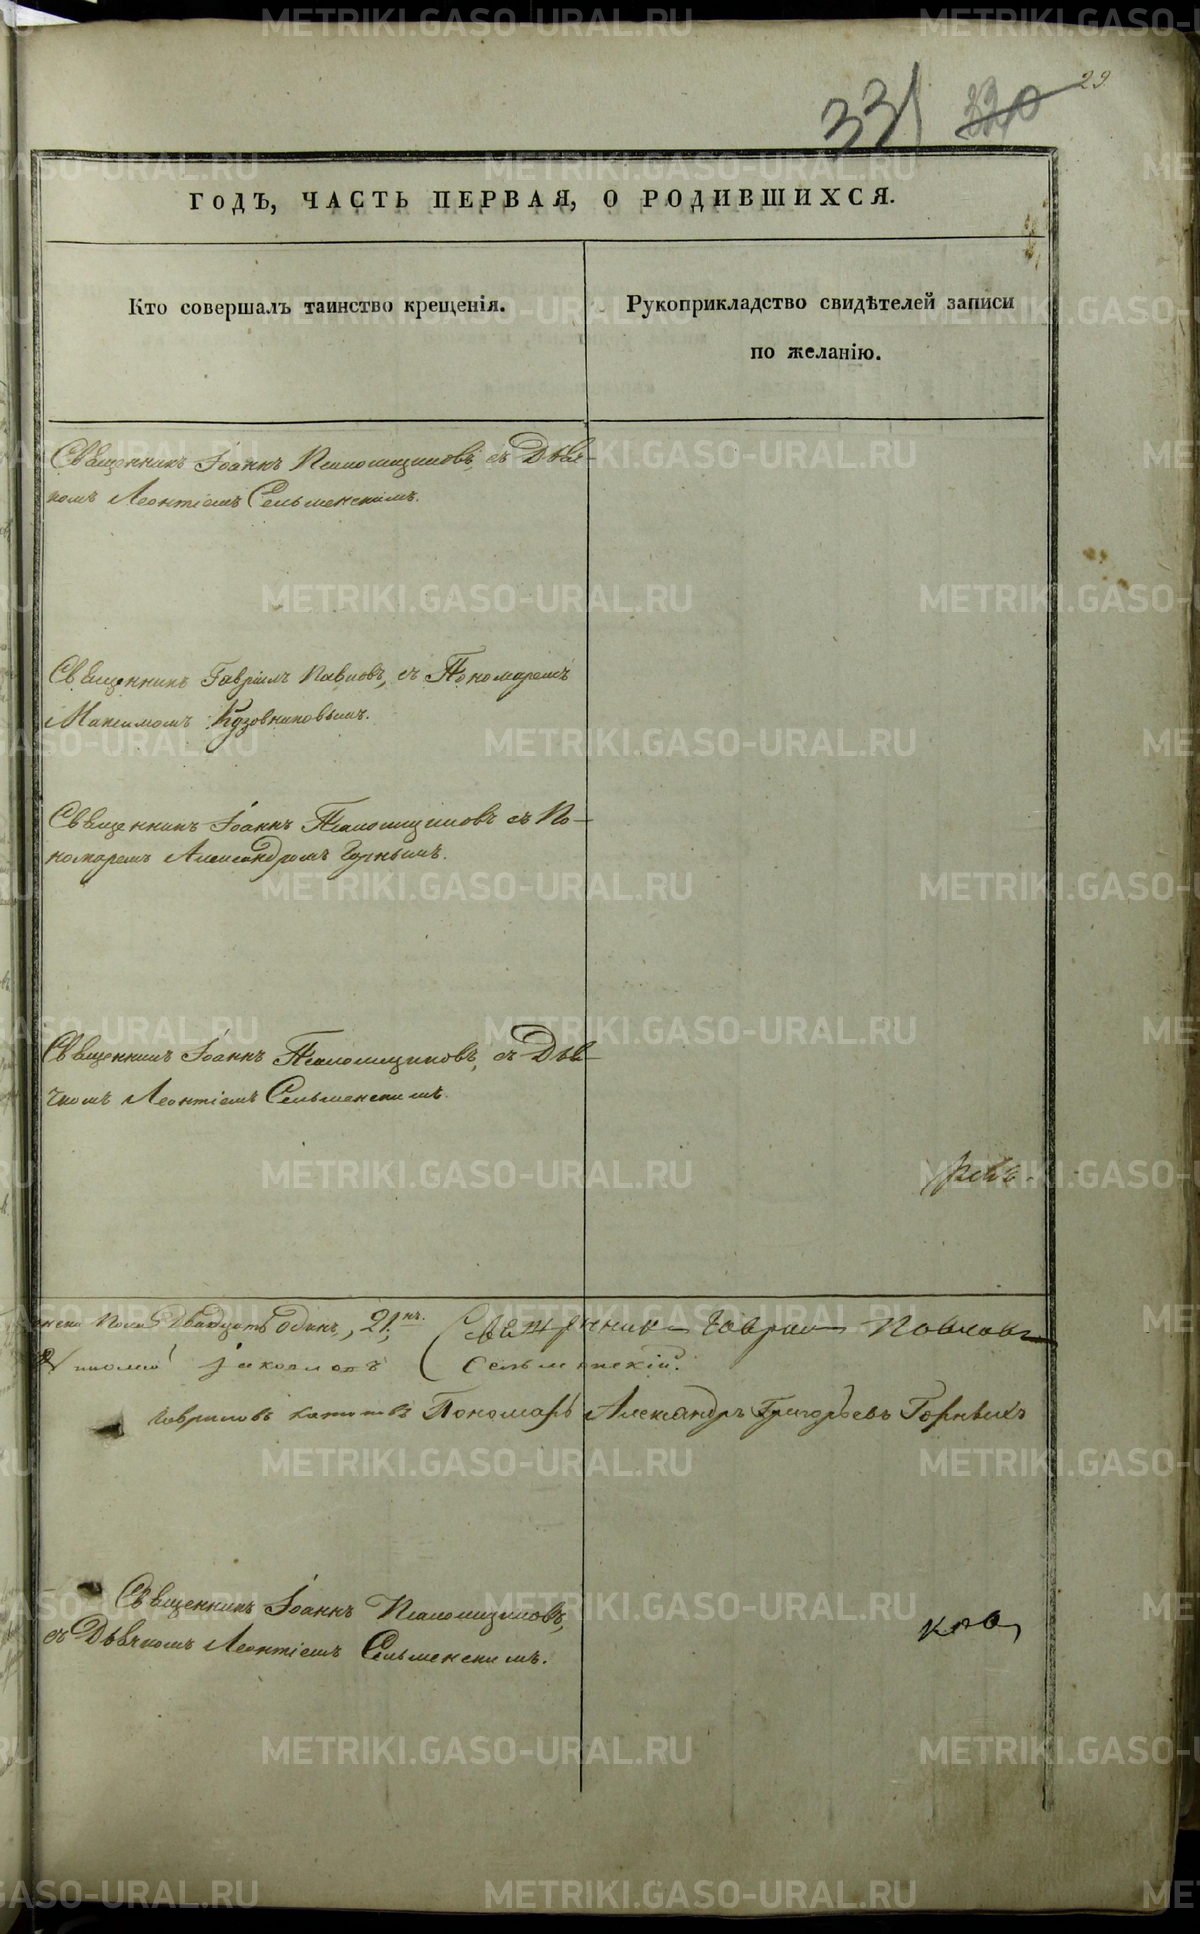 29
331 330
ГОДЪ, ЧАСТЬ ПЕРВАЯ, О РОДИВШИХСЯ.
Кто совершалъ таинство крещенія.
Рукоприкладство свидѣтелей записи
по желанію.
Священникъ Іоаннъ Псаломщиковъ, съ Дьяч-
комъ Леонтіемъ Сельменскимъ.
Священникъ Гавріилъ Павловъ, съ Пономаремъ
Максимомъ Кузовниковымъ.
Священникъ Іоаннъ Псаломщиковъ съ По-
номаремъ Александромъ Горныхъ.
Священникъ Іоаннъ Псаломщиковъ, съ Дья-
чкомъ Леонтіемъ Сельменскимъ.
двадцать одинъ, 21. Священникъ Гавріилъ Павловъ
Сельменскій.
Пономарь Александръ Григорьевъ Горныхъ
Священникъ Іоаннъ Псаломщиковъ,
съ Дьячкомъ Леонтіемъ Сельменскимъ.
METRIKI.GASO-URAL.RU